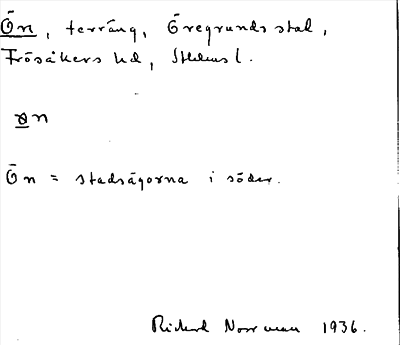 Ön, terräng, Öregrunds stad,
Frösåkers hd, Sthlms l.
øn
Ön = stadsägorna i söder.
Rickard Norrman 1936.